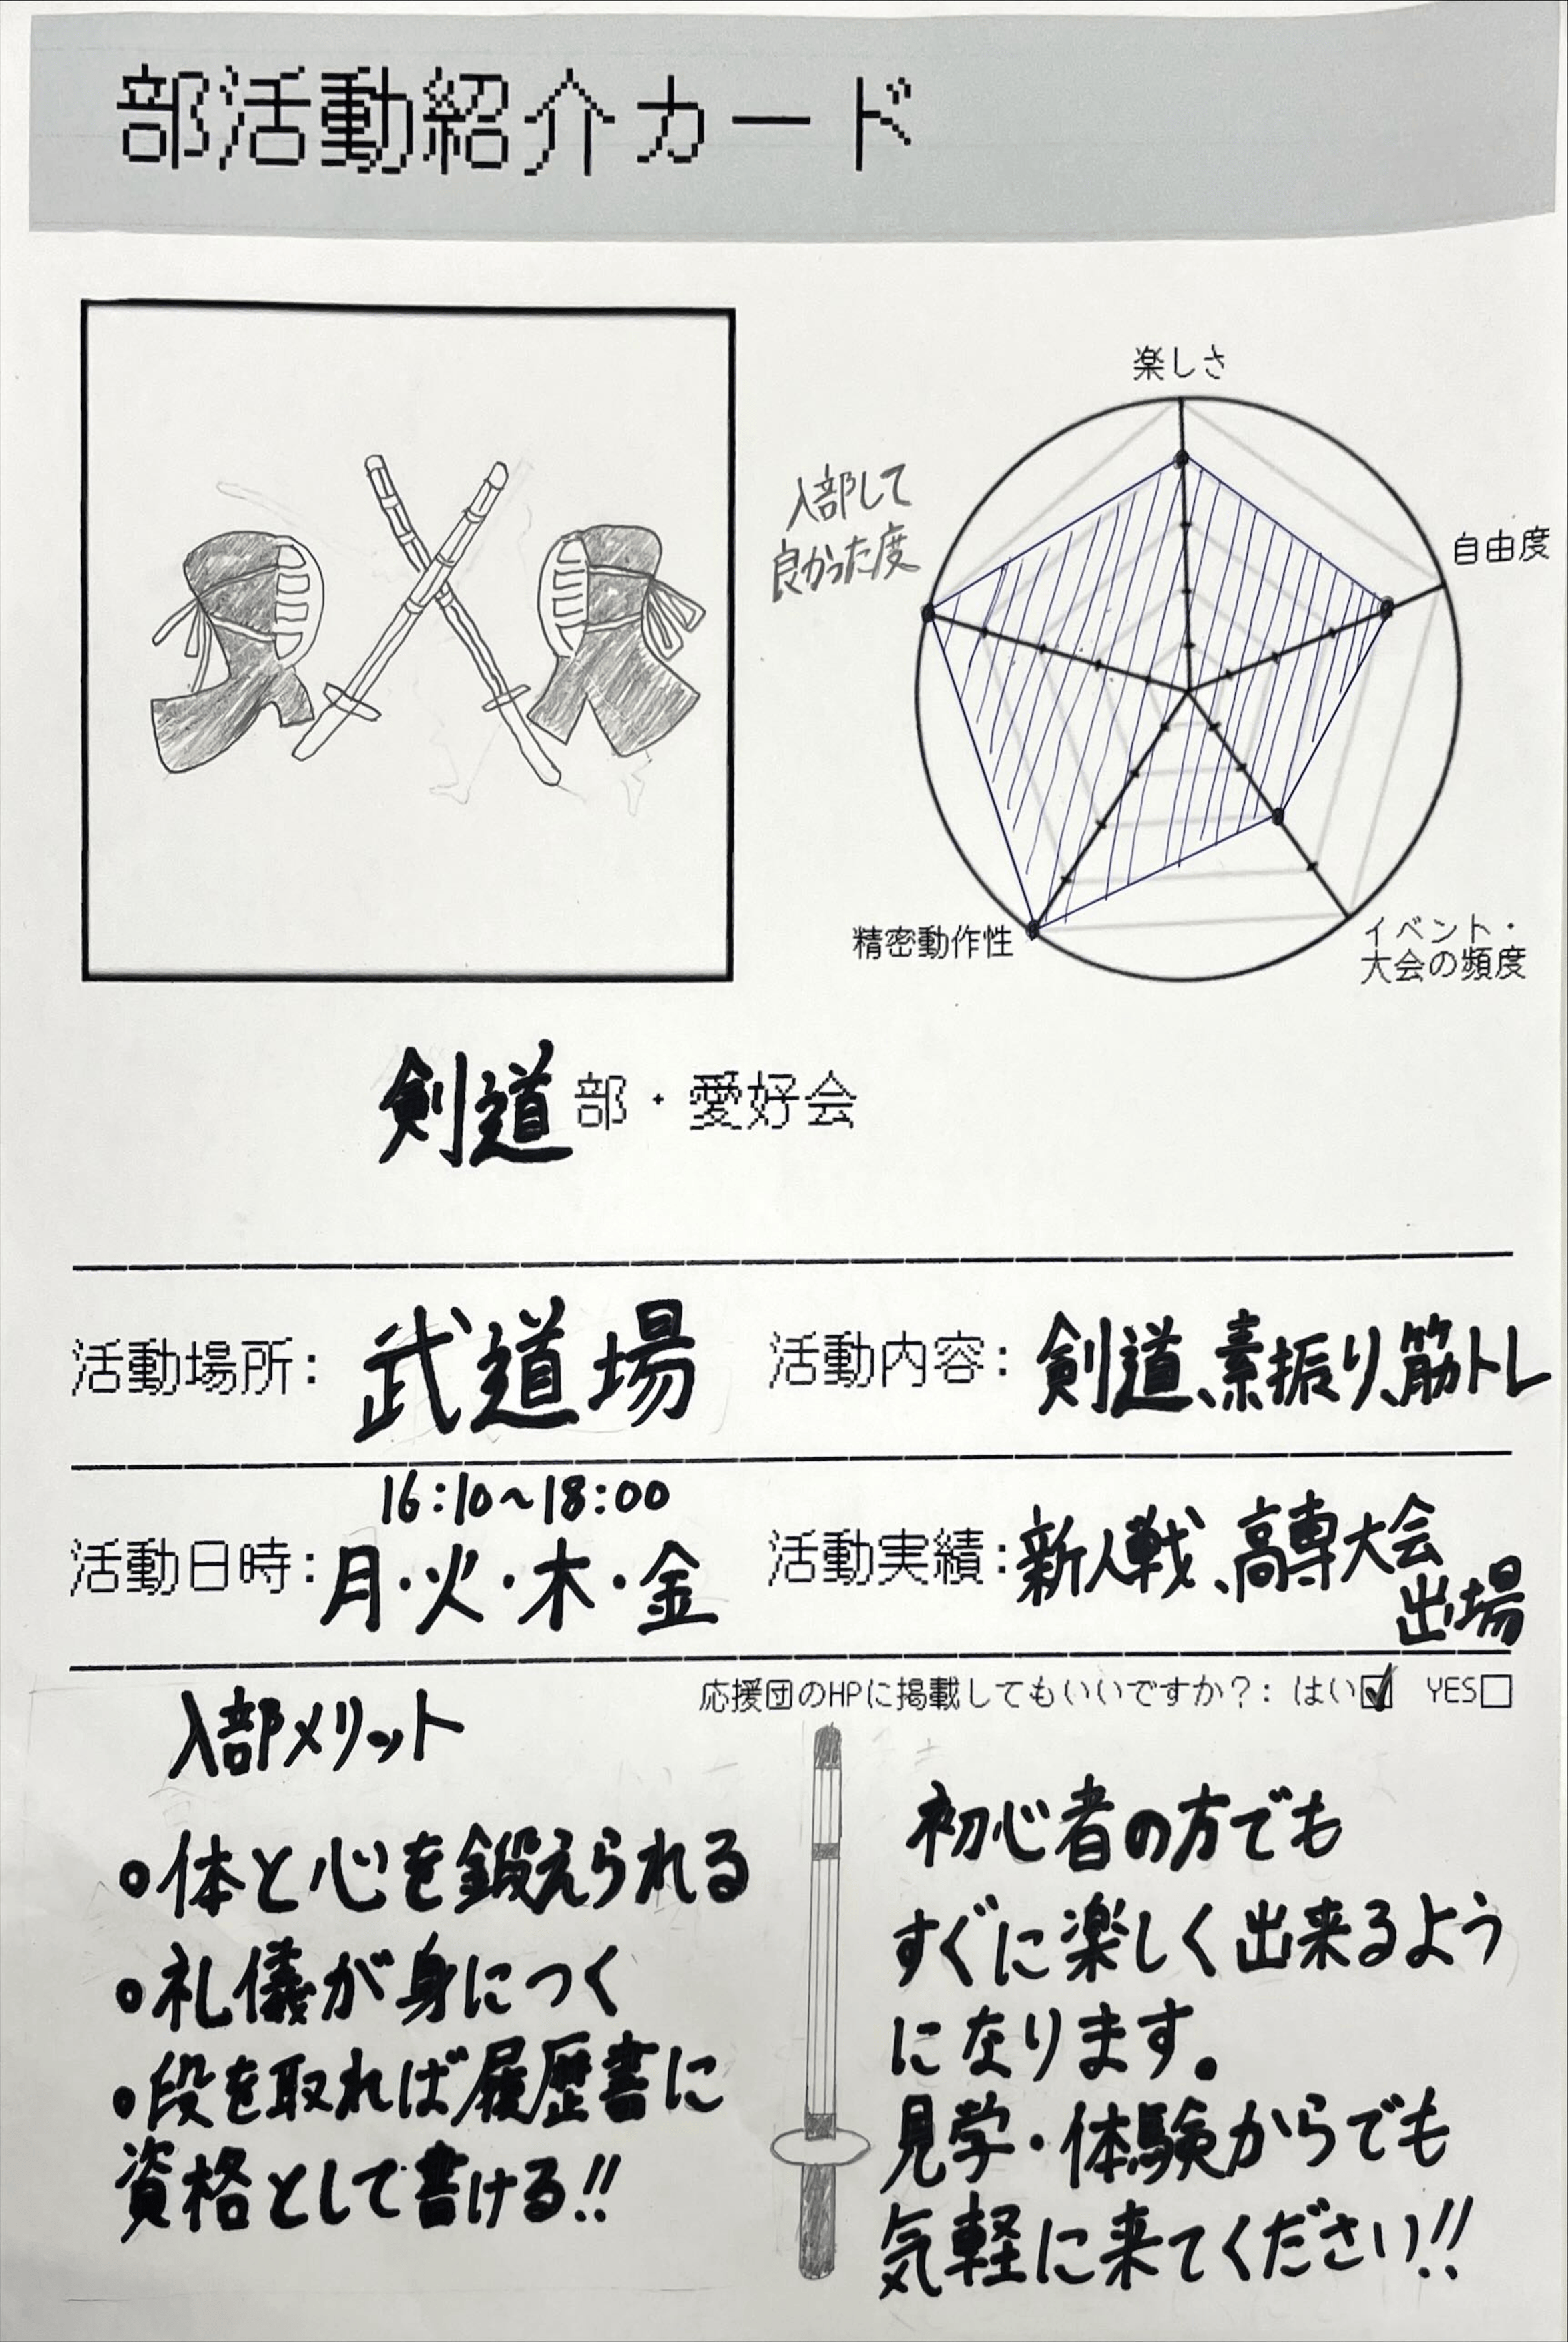 部活動紹介カード
楽しさ
入部して
良かった度
自由度
精密動作性
イベント・
大会の頻度
剣道部・愛好会
活動場所: 武道場
活動内容: 剣道、素振り、筋トレ
16:10~18:00
活動日時: 月・火・木・金
活動実績: 新人戦、高専大会
出場
応援団のHPに掲載してもいいですか?: はい☑ YES□
入部メリット
○体と心を鍛えられる
○礼儀が身につく
○段を取れば履歴書に
資格として書ける!!
初心者の方でも
すぐに楽しく出来るよう
になります。
見学・体験からでも
気軽に来てください!!